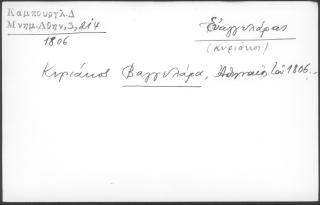 Καμπουργλ.Δ
Μνημ.Αθην.3,214
1806
Εὐαγγελάρας
(Κυριάκος)
Κυριάκος Βαγγελάρα, Ἀθηναῖος τοῦ 1806.